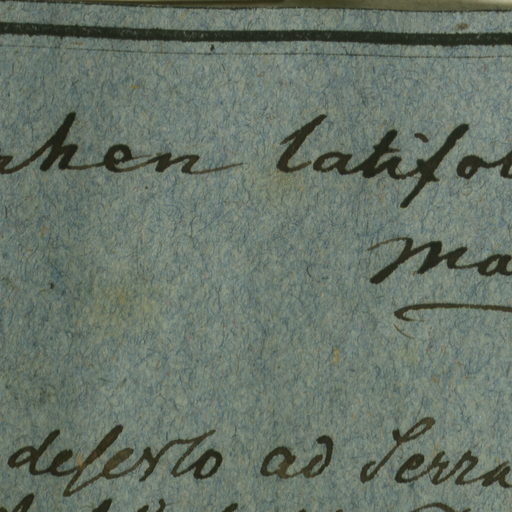 hen latifol
Ma
deserto ad Serra